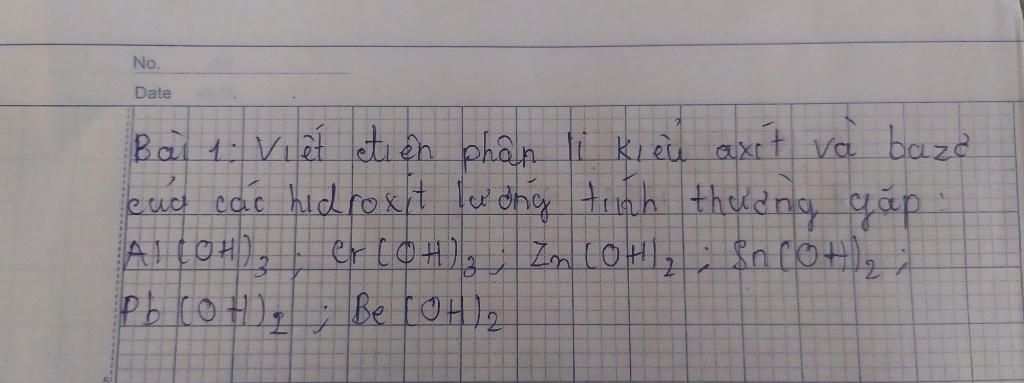 No.
Date
Bài 1: Viết điện phân li kiểu axit và bazơ
của các hidroxit lưỡng tính thường gặp:
Al(OH)₃; Cr(OH)₃; Zn(OH)₂; Sn(OH)₂;
Pb(OH)₂; Be(OH)₂